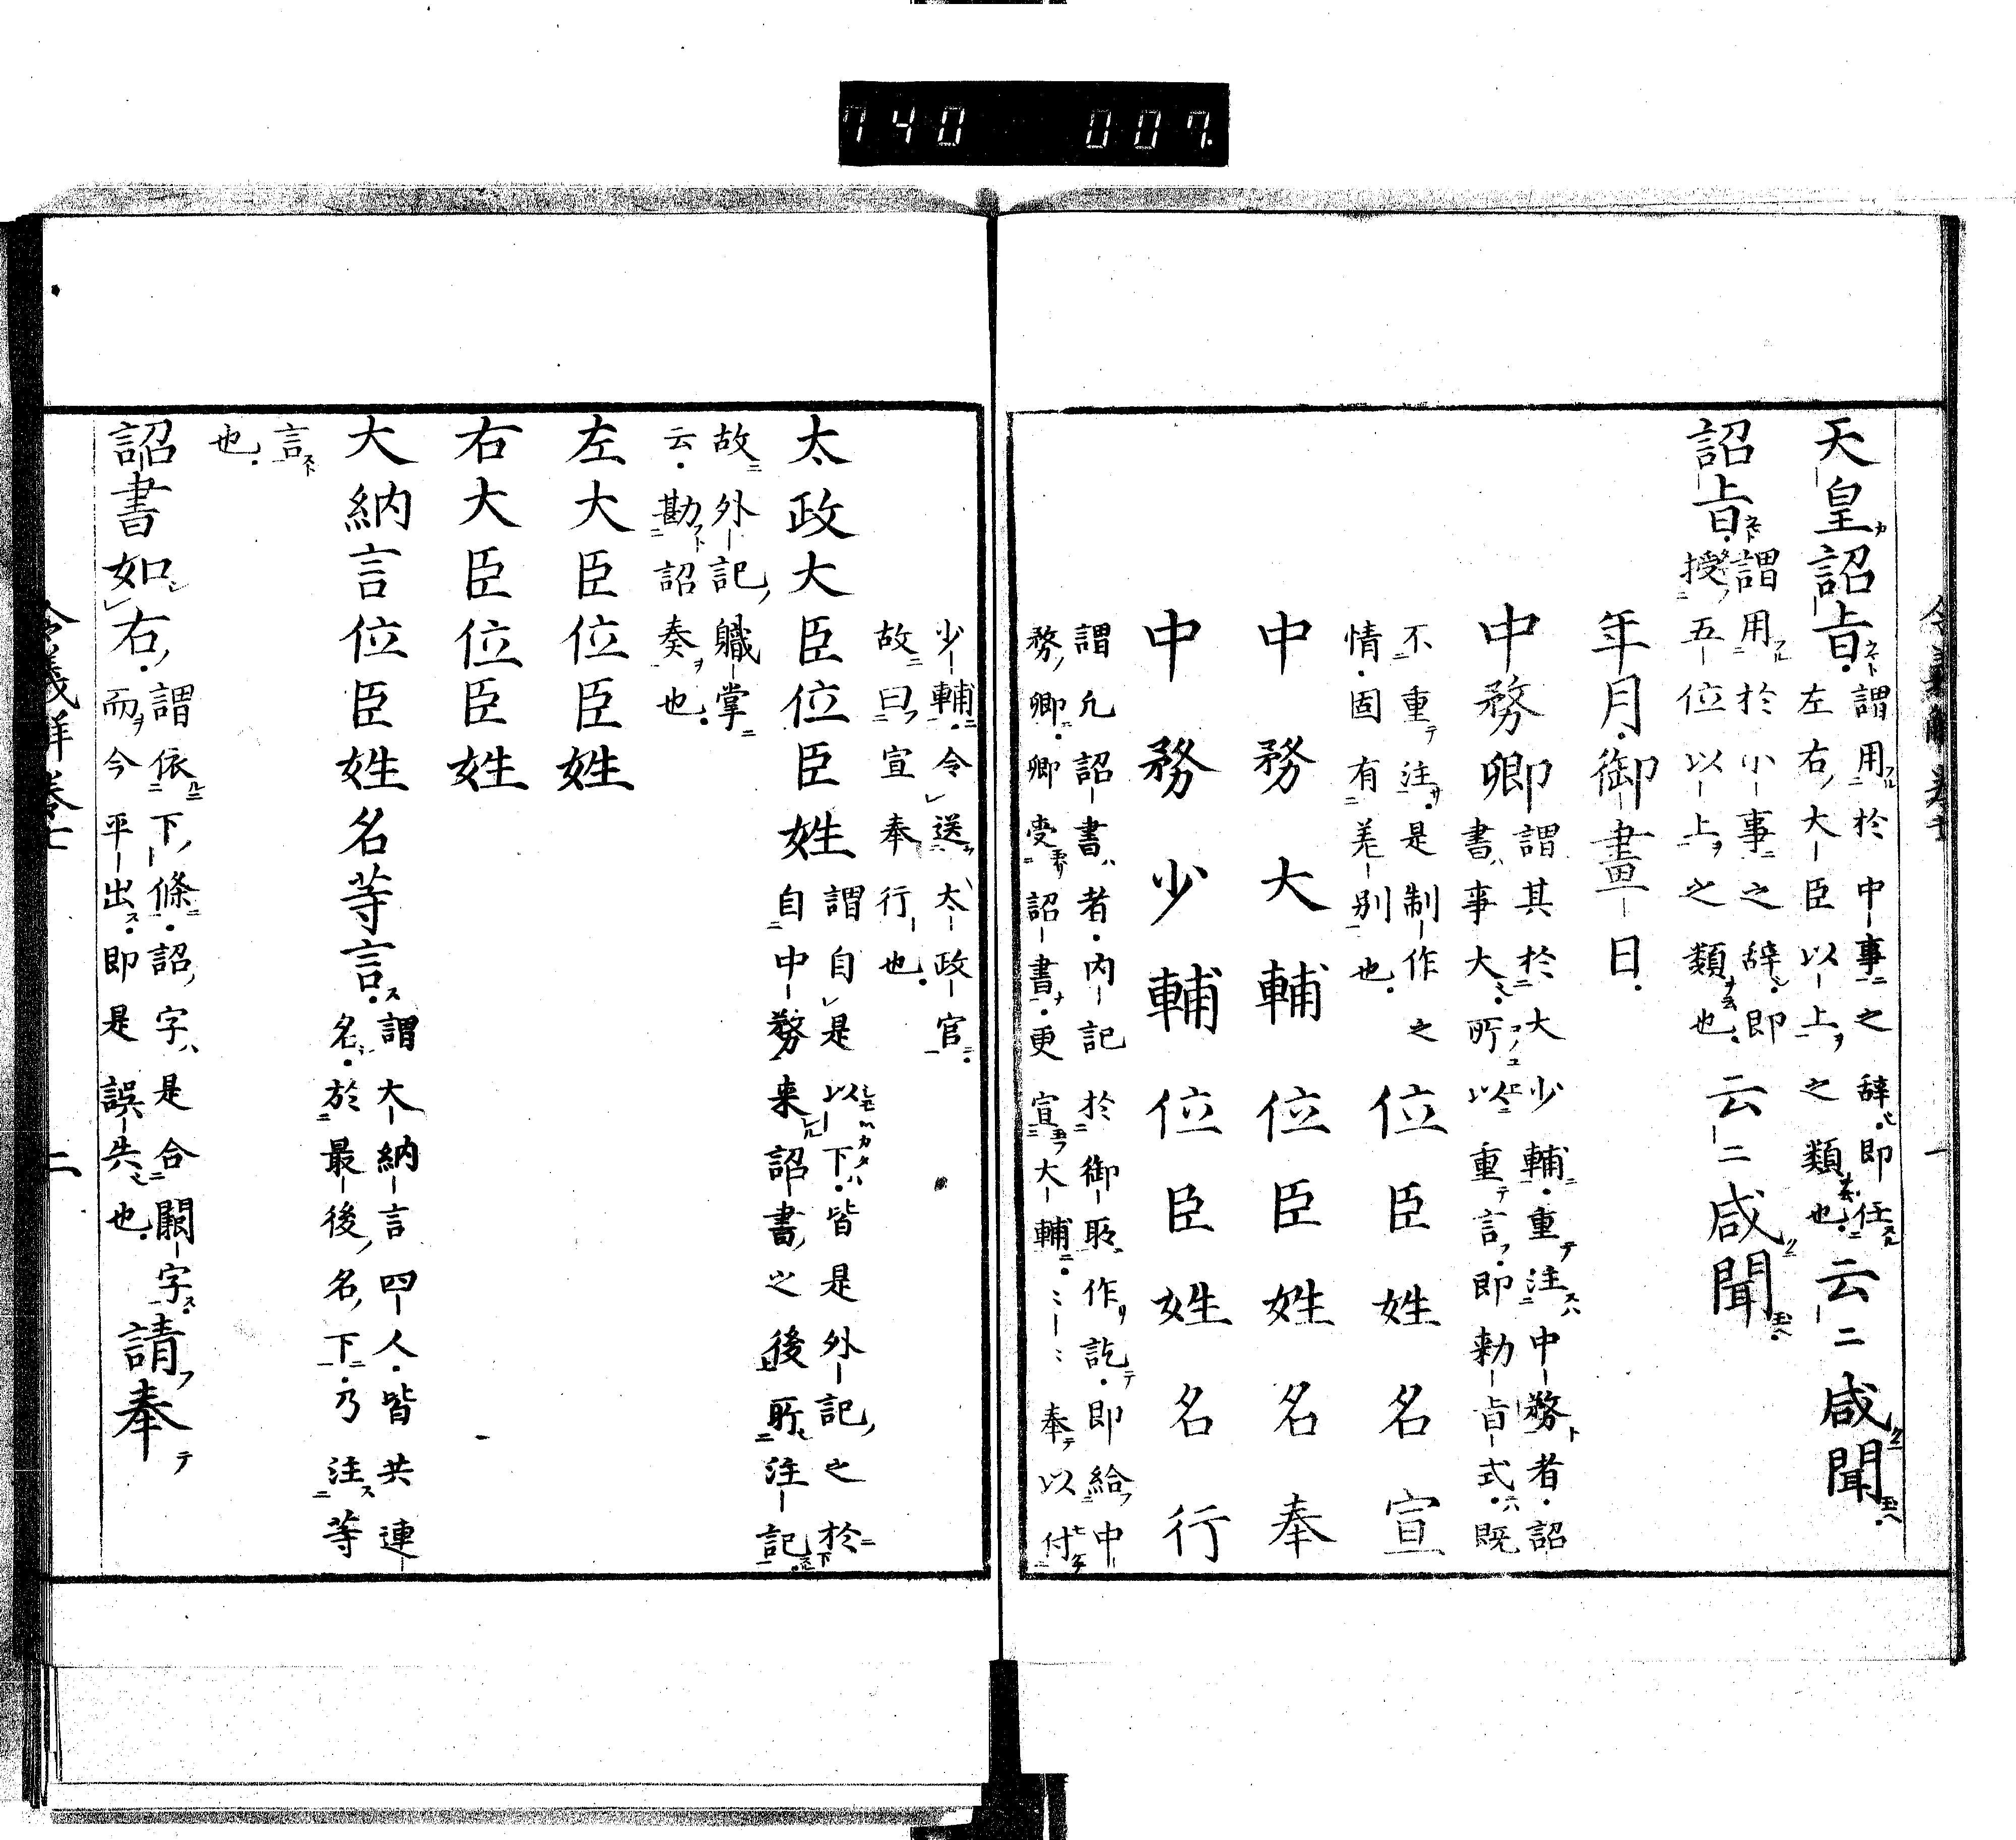 740 007
令義解 卷七 一
天皇詔旨謂用於中事之辭即任左右大臣以上之類也云〻咸聞
詔旨謂用於小事之辭即授五位以上之類也云〻咸聞
年月御畫日
中務卿謂其於大少輔重注中務者詔書事大所以重言即勅旨式既
不重注是制作之情固有差別也位臣姓名宣
中務大輔位臣姓名奉
中務少輔位臣姓名行
謂凡詔書者內記於御所作訖即給中務卿卿受詔書更宣大輔〻〻奉以付
少輔令送太政官故曰宣奉行也
太政大臣位臣姓謂自是以下皆是外記之於自中務来詔書之後所注記
故外記職掌云勘詔奏也
左大臣位臣姓
右大臣位臣姓
大納言位臣姓名等言謂大納言四人皆共連名於最後名下乃注等
言也
詔書如右謂依下條詔字是合闕字而今平出即是誤失也請奉
令義解卷七 二